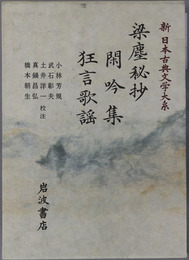 新日本古典文学大系
梁塵秘抄
閑吟集
狂言歌謡
小林芳規
武石彰夫
土井洋一
真鍋昌弘
橋本朝生
校注
岩波書店